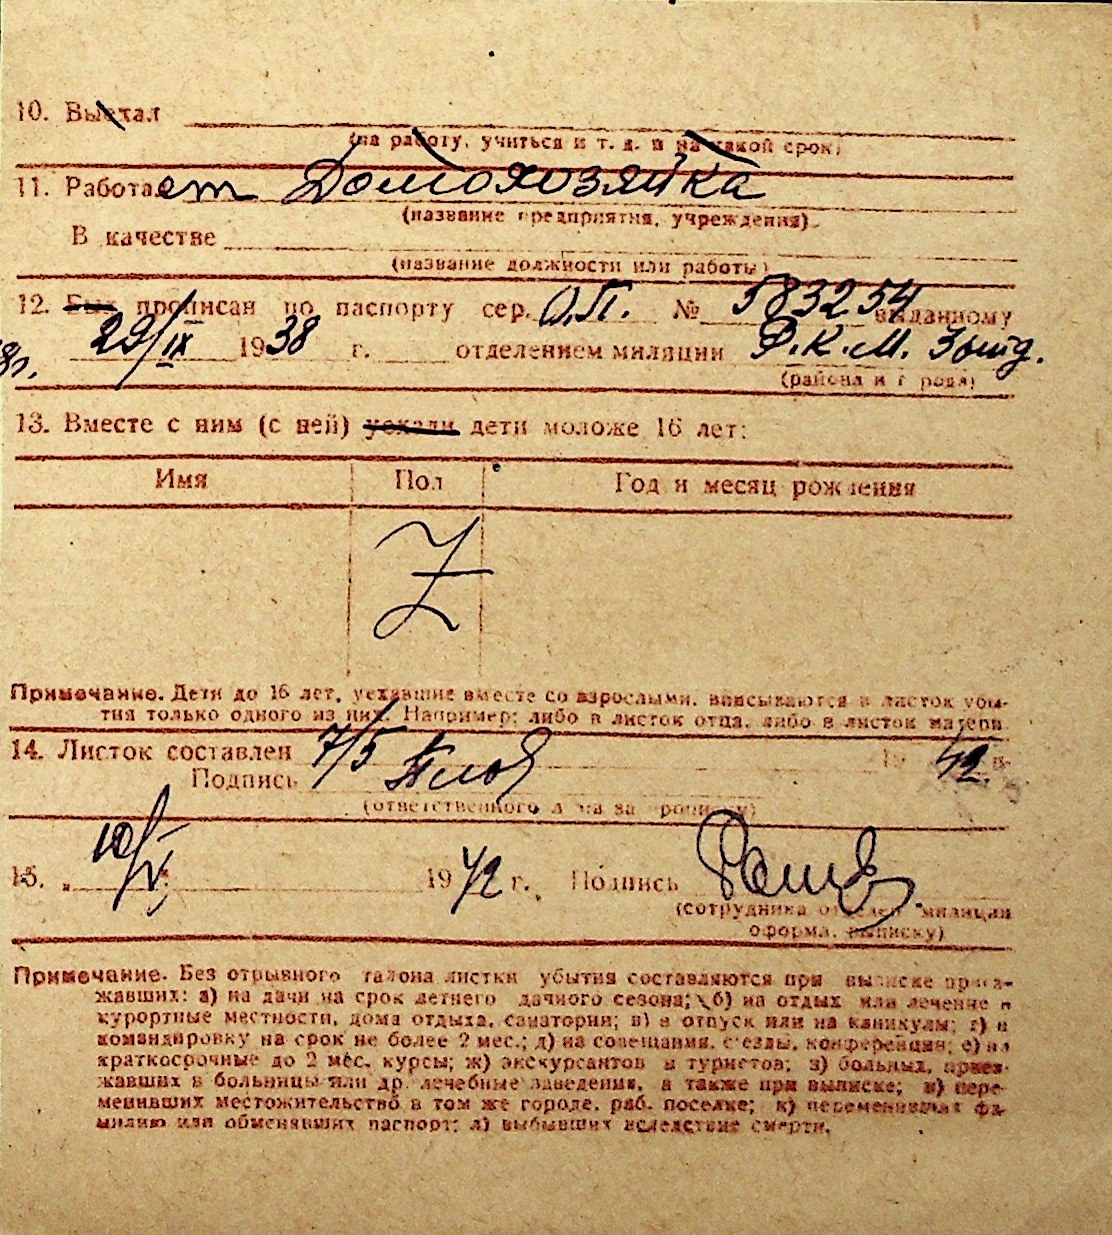 10. Выехал
(на работу, учиться и т. д. и на какой срок)
11. Работает Домохозяйка
(название предприятия, учреждения)
В качестве
(название должности или работы)
12. Был прописан по паспорту сер. О.П. № 583254 выданному
29/IX 1938 г. отделением милиции Р.К.М.
(района и города)
13. Вместе с ним (с ней) уехали дети моложе 16 лет:
Имя Пол Год и месяц рождения
Z
Примечание. Дети до 16 лет, уехавшие вместе со взрослыми, вписываются в листок убы-
тия только одного из них. Например: либо в листок отца, либо в листок матери
14. Листок составлен 7/5 19 42 г.
Подпись
(ответственного лица за прописку)
15. „ 10/V 1942 г. Подпись
(сотрудника отделен. милиции
оформл. выписку)
Примечание. Без отрывного талона листки убытия составляются при выписке приез-
жавших: а) на дачи на срок летнего дачного сезона; б) на отдых или лечение в
курортные местности, дома отдыха, санатории; в) в отпуск или на каникулы; г) в
командировку на срок не более 2 мес.; д) на совещания, съезды, конференции; е) на
краткосрочные до 2 мес. курсы; ж) экскурсантов и туристов; з) больных, приез-
жавших в больницы или др. лечебные заведения, а также при выписке; и) пере-
менивших местожительство в том же городе, раб. поселке; к) переменивших фа-
милию или обменявших паспорт; л) выбывших вследствие смерти.